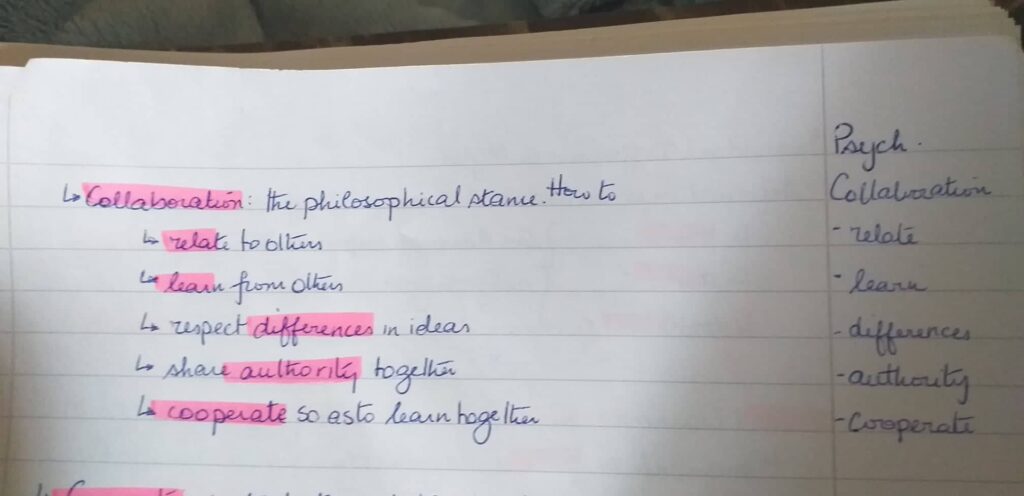 Psych.
↳ Collaboration: the philosophical stance. How to
Collaboration
↳ relate to others
- relate
↳ learn from others
- learn
↳ respect differences in ideas
- differences
↳ share authority together
- authority
↳ cooperate so as to learn together
- Cooperate